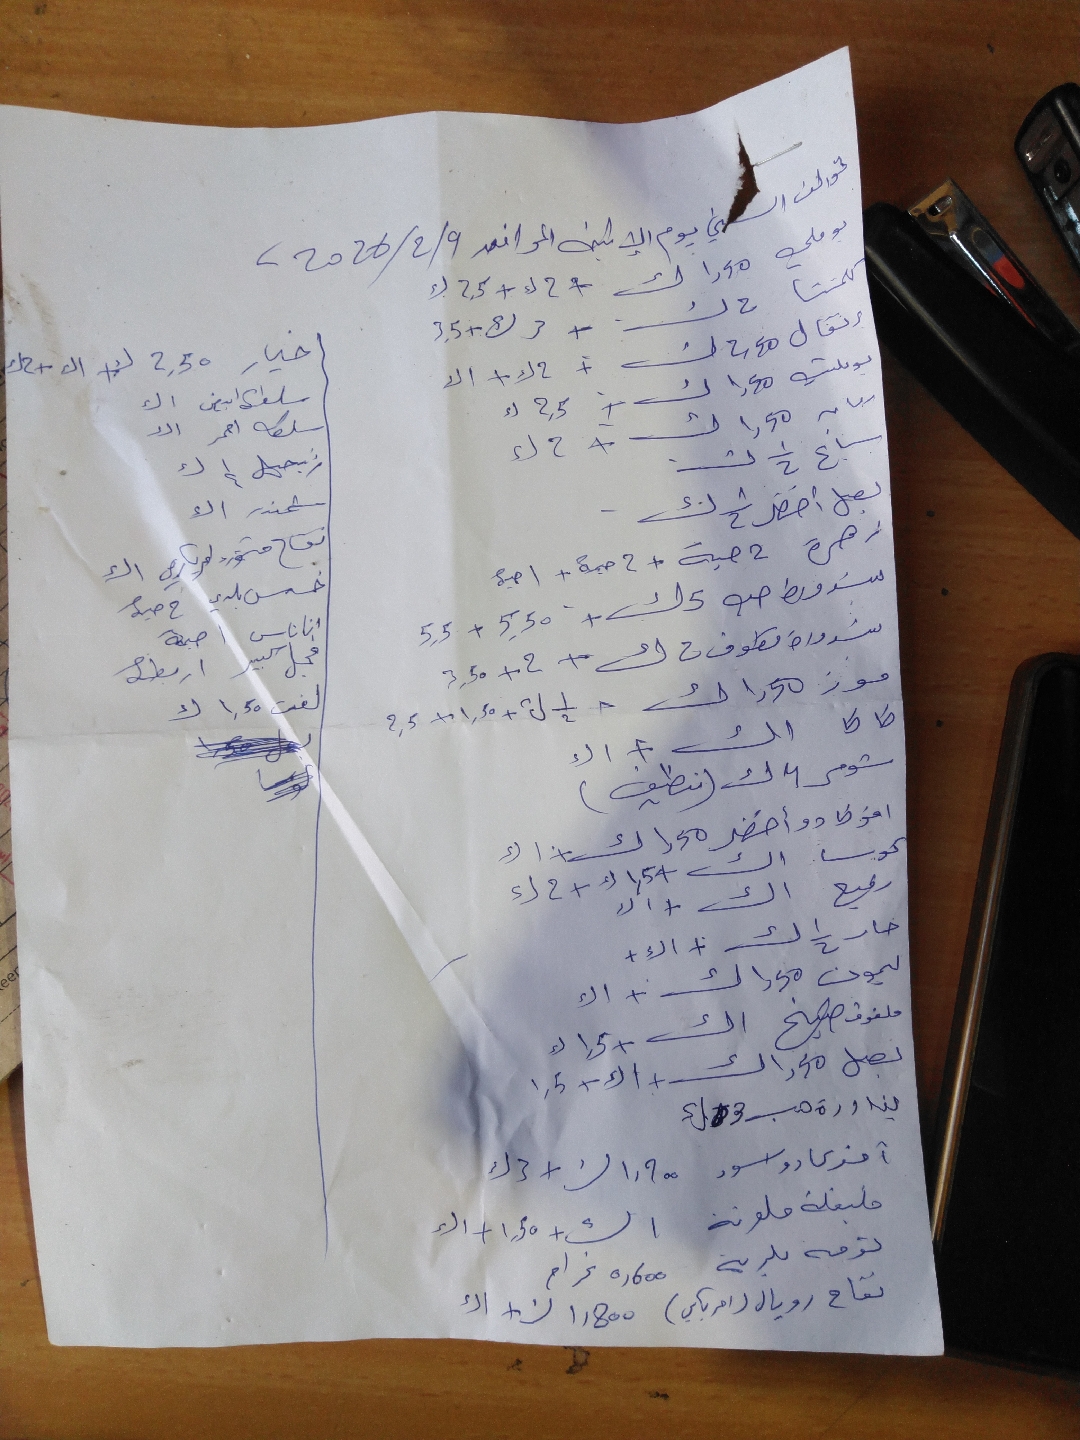 يوم الإثنين الموافق 2026/2/9
بوملي 1,50 ك + 2ك + 2,5 ك
كلمنتينا 2 ك + 3 ك + 3,5
برتقال 2,50 ك + 2ك + 1ك
1,50 ك + 2,5 ك
1,50 ك + 2 ك
سبانخ 1/2 ك
بصل أخضر 1/2 ك -
زهرة 2 حبة + 2 حبة + 1 حبة
بندورة حب 5 ك + 5,50 + 5,5
بندورة قطوف 2 ك + 2 + 3,50
موز 1,50 ك + 1/2 ك + 1,50 + 2,5
كاكا 1 ك + 1 ك
شومر 4 ك (تنظيف)
افوكادو أخضر 1,50 ك + 1 ك
كوسا 1 ك + 1,5 ك + 2 ك
رفيع 1 ك + 1 ك
حار 1/2 ك + 1 ك +
ليمون 1,50 ك + 1 ك
ملفوف 1 ك + 1,5 ك
بصل 1,50 ك + 1 ك + 1,5
بندورة حب 3 ك
أفوكادو اسود 1,900 ك + 3 ك
فليفلة ملونة 1 ك + 1,50 + 1 ك
ثومة بلدية 0,600 غرام
تفاح رويال (امريكي) 1,800 ك + 1 ك
خيار 2,50 ك + 1ك + 2ك
ابيض 1 ك
احمر 1 ك
زنجبيل 1/4 ك
شمندر 1 ك
تفاح امريكي 1 ك
خس بلدي 2 حبة
اناناس 1 حبة
فجل كبير 1 ربطة
لفت 1,50 ك